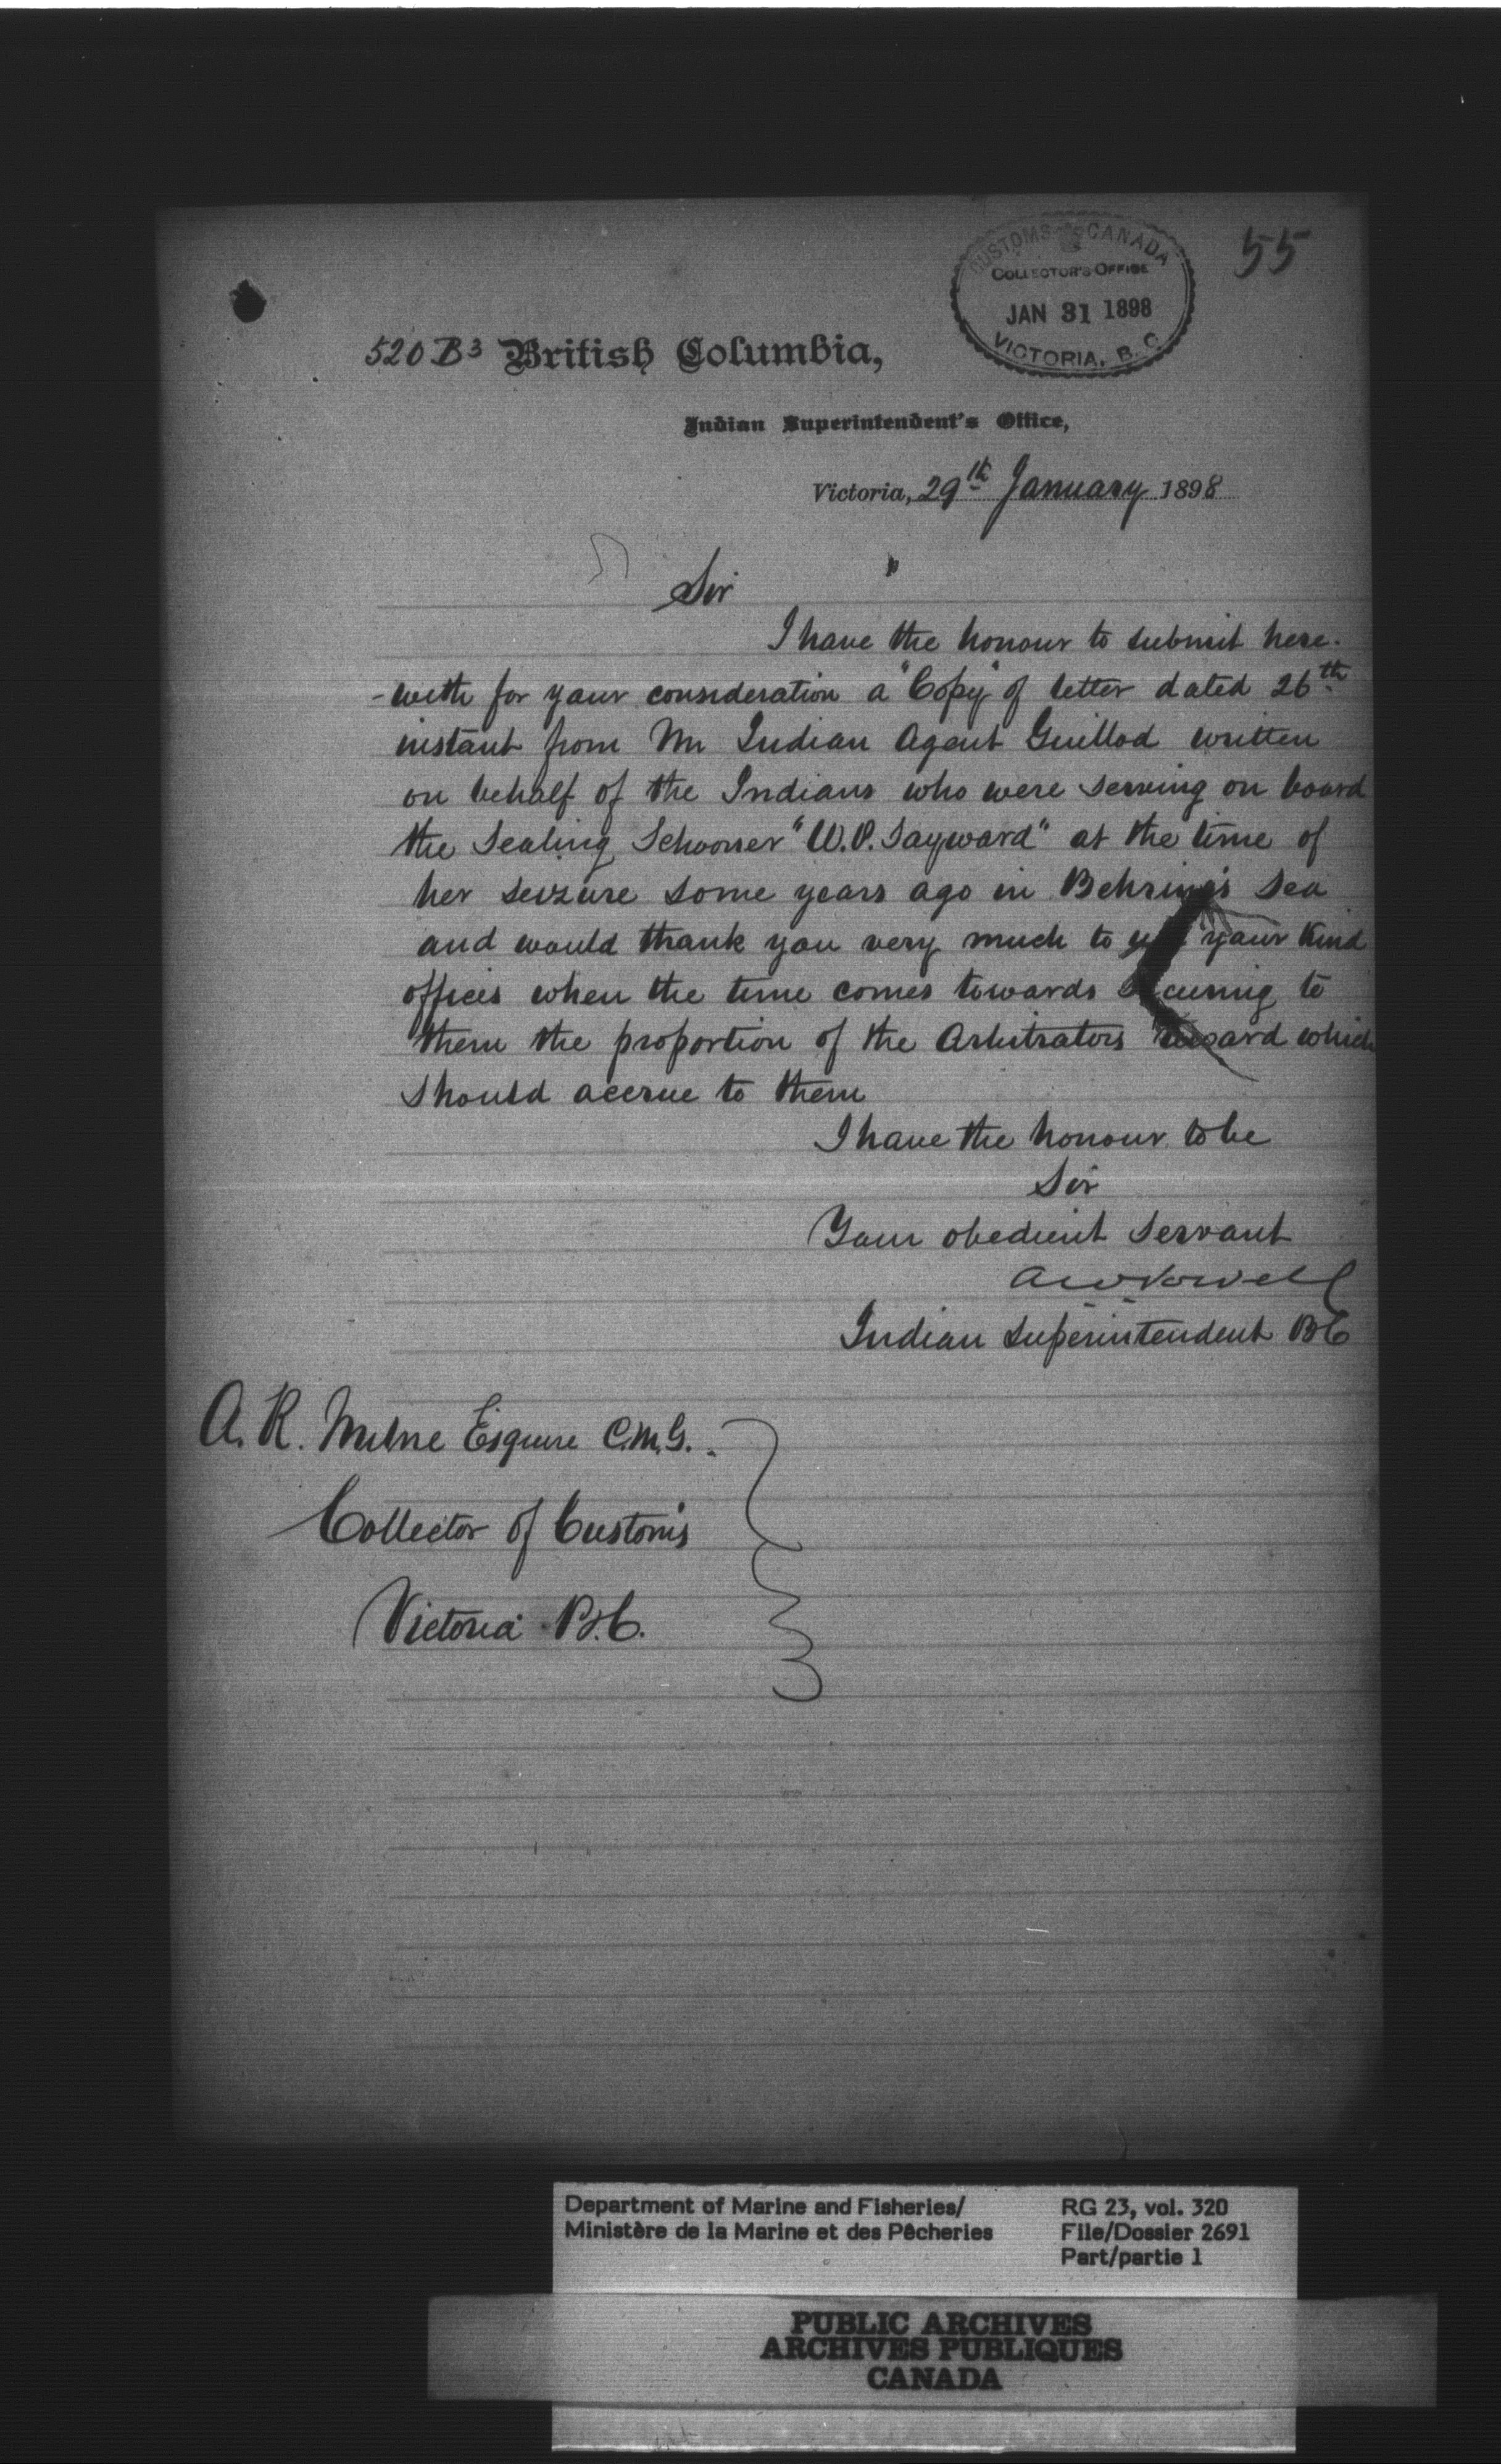 55
CUSTOMS CANADA
COLLECTOR'S OFFICE
JAN 31 1898
VICTORIA, B. C.
520 B3 British Columbia,
Indian Superintendent's Office,
Victoria, 29th January 1898
Sir
I have the honour to submit here-
-with for your consideration a "Copy" of letter dated 26th
instant from Mr Indian Agent Guillod written
on behalf of the Indians who were serving on board
the Sealing Schooner "W.P. Sayward" at the time of
her seizure some years ago in Behring's Sea
and would thank you very much to your kind
offices when the time comes towards securing to
them the proportion of the Arbitrators award which
should accrue to them
I have the honour to be
Sir
Your obedient Servant
A W Vowell
Indian Superintendent BC
A. R. Milne Esquire C.M.G.
Collector of Customs
Victoria B.C.
Department of Marine and Fisheries/
Ministère de la Marine et des Pêcheries
RG 23, vol. 320
File/Dossier 2691
Part/partie 1
PUBLIC ARCHIVES
ARCHIVES PUBLIQUES
CANADA